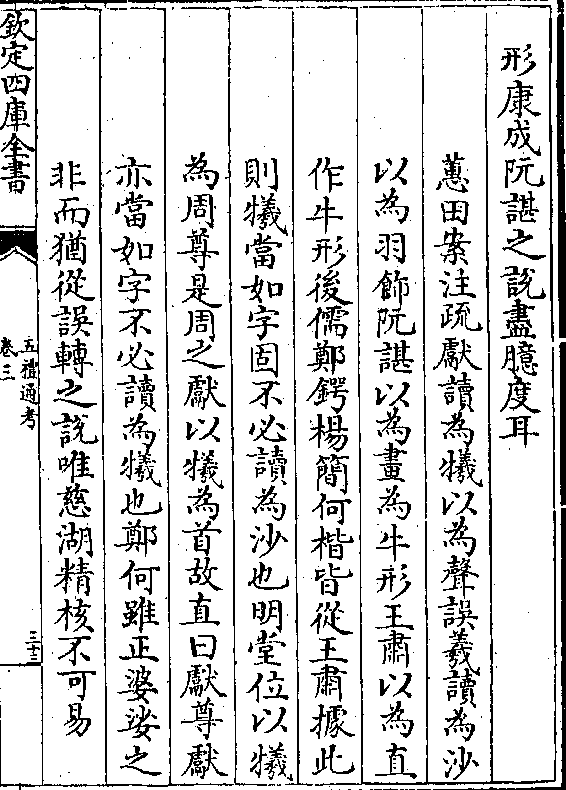 形康成阮諶之說盡臆度耳
蕙田案注疏獻讀為犧以為聲誤羲讀為沙
以為羽飾阮諶以為畫為牛形王肅以為直
作牛形後儒鄭鍔楊簡何楷皆從王肅據此
則犧當如字固不必讀為沙也明堂位以犧
為周尊是周之獻以犧為首故直曰獻尊獻
亦當如字不必讀為犧也鄭何雖正婆娑之
非而猶從誤轉之說唯慈湖精核不可易
欽定四庫全書
五禮通考
卷三
三十三